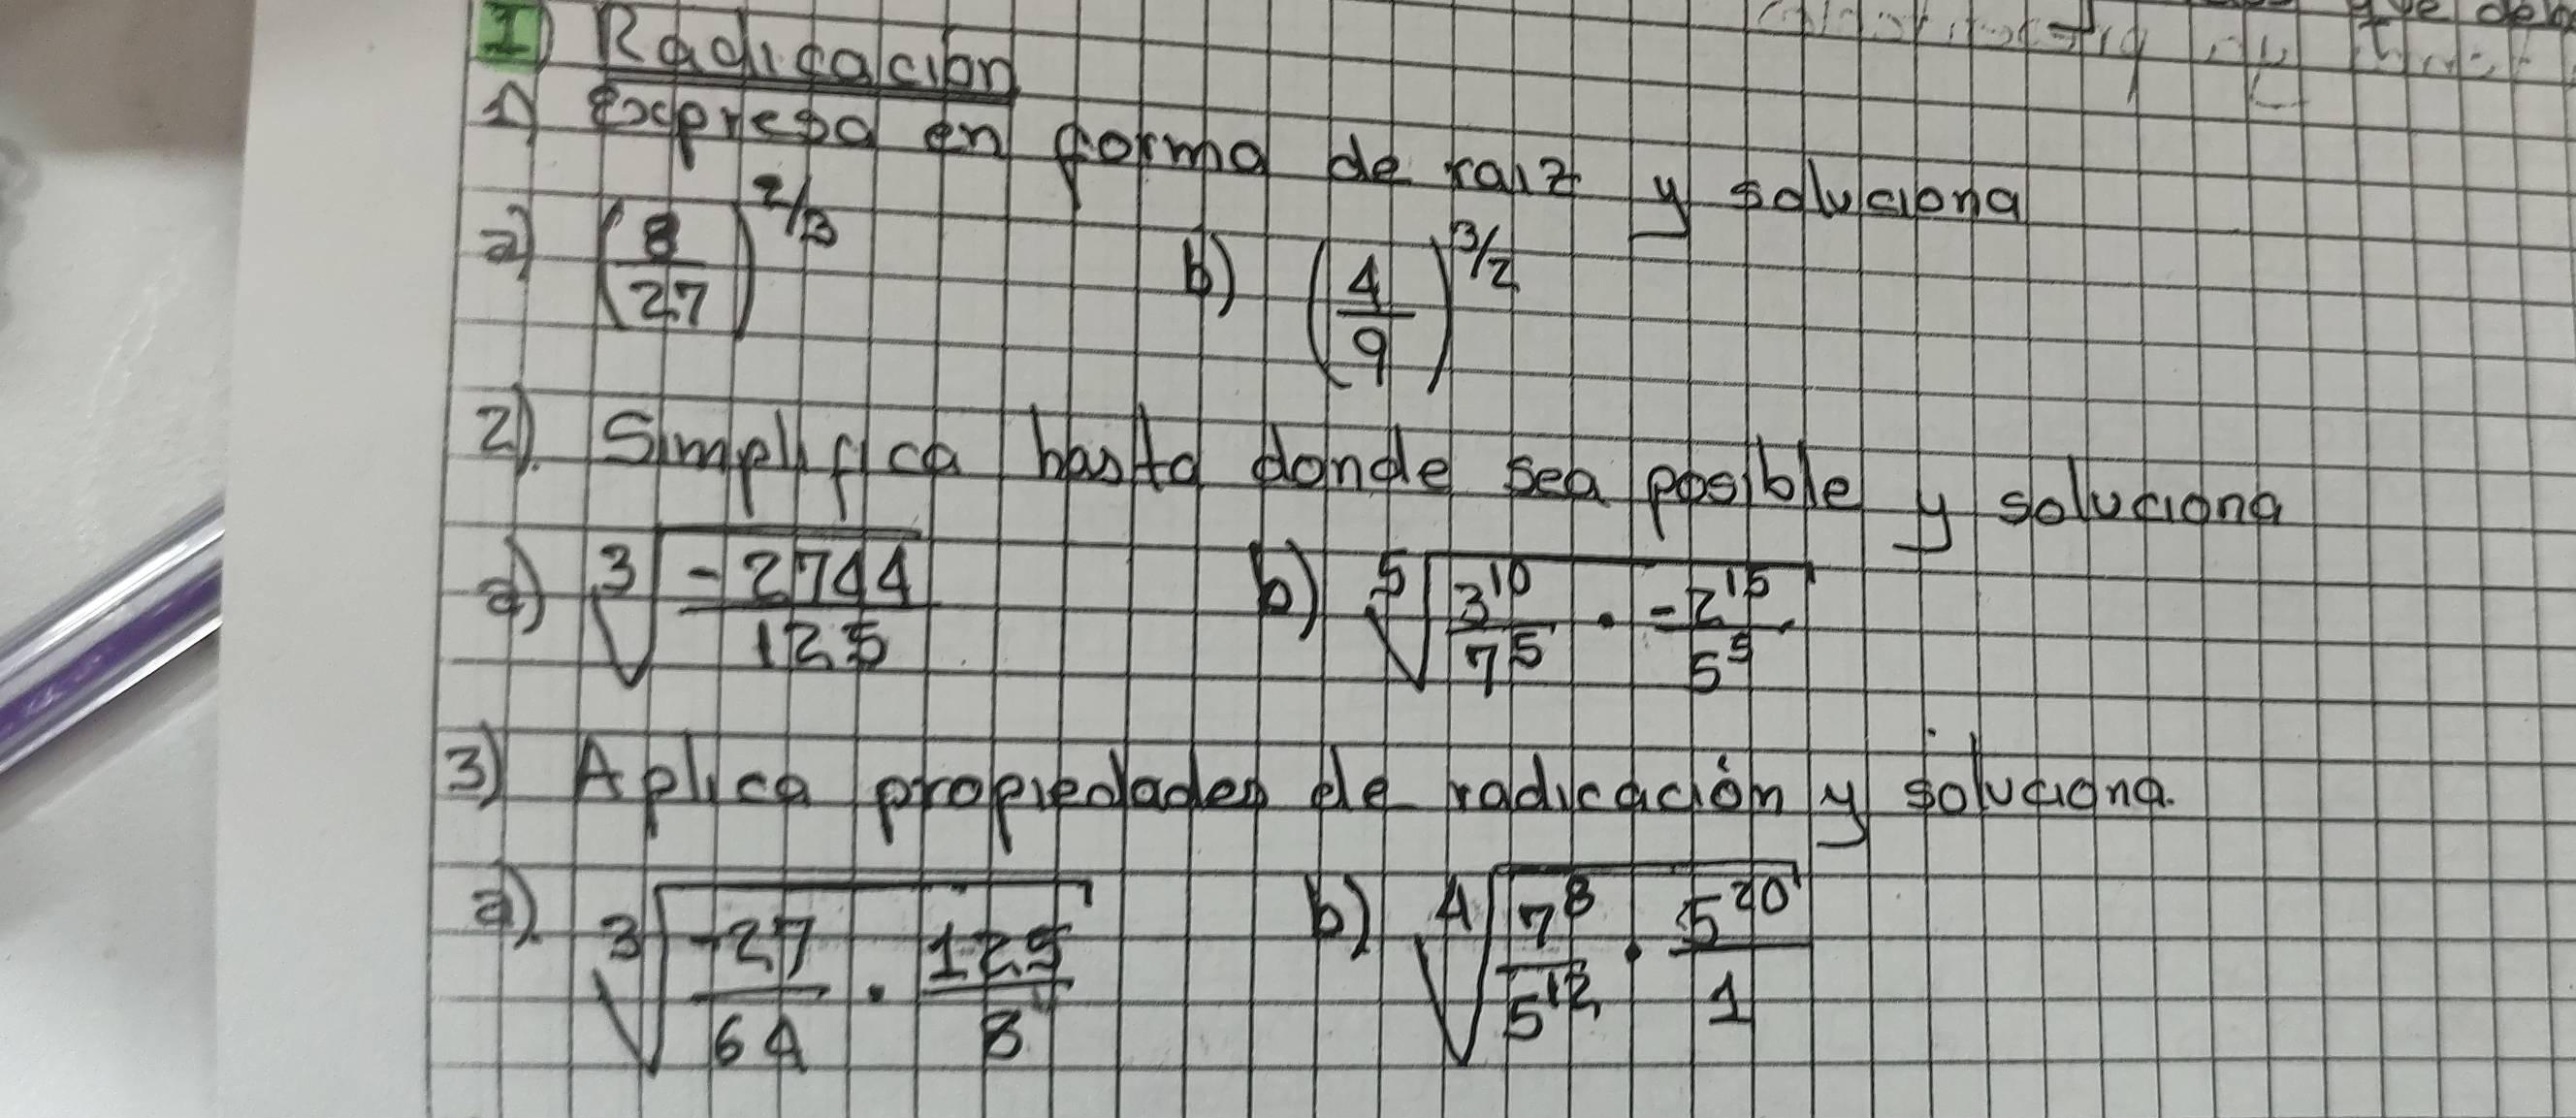 I) Radicación
1) Expresa en forma de raiz y soluciona
a) (8/27)^2/3 b) (4/9)^3/2
2). Simplifica hasta donde sea posible y soluciona
a) ∛(-2744/125) b) ⁵√(3^10/7^5 · -2^15/5^5)
3) Aplica propiedades de radicación y soluciona.
a). ∛(-27/64 · 125/8) b) ⁴√(7^8/5^12 · 5^20/1)